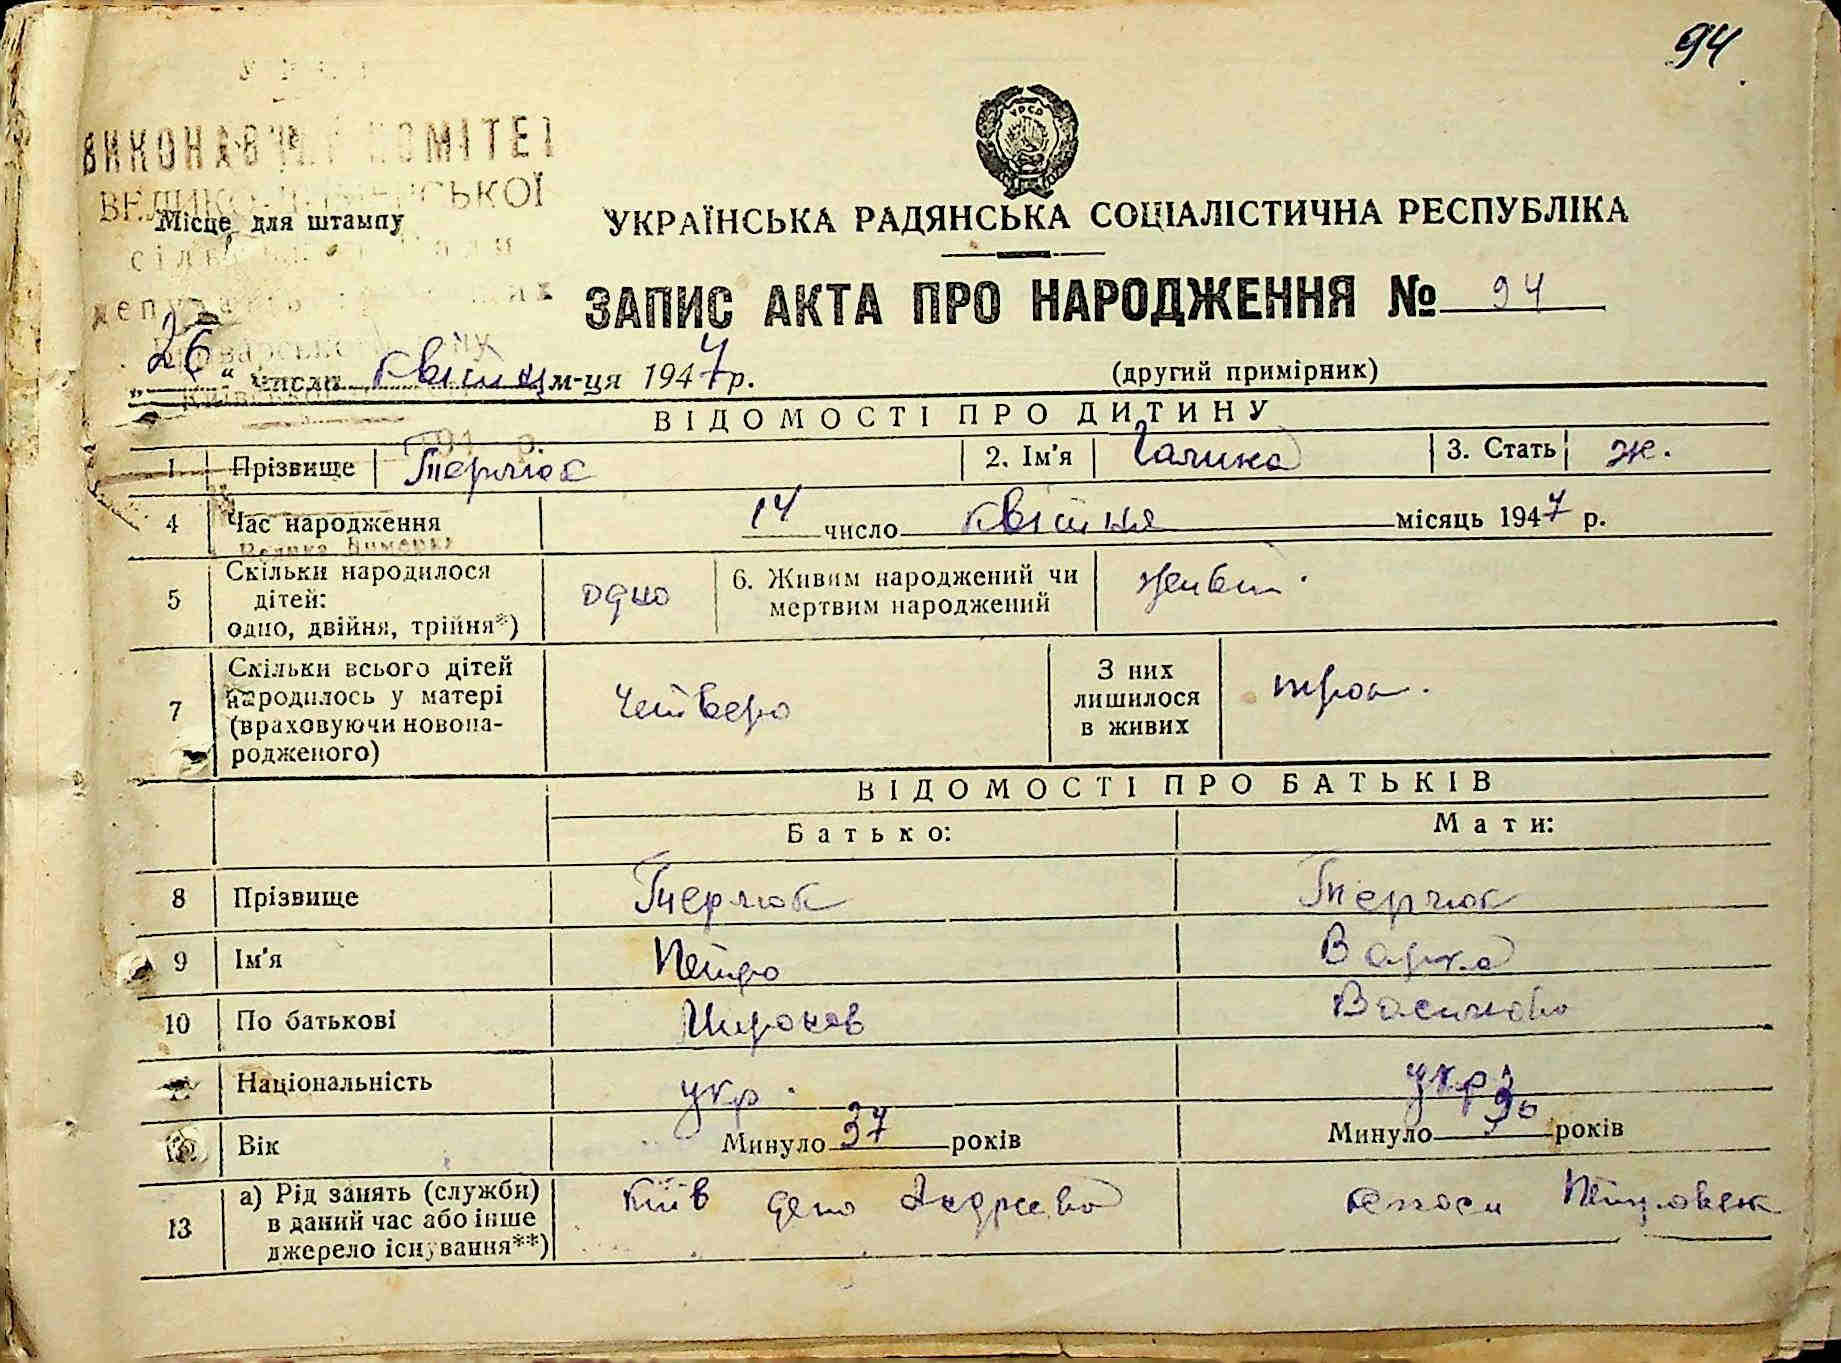 94
УРСР
ВИКОНАВЧИЙ КОМІТЕТ
ВЕЛИКО-ДИМЕРСЬКОЇ
Місце для штампу
УКРАЇНСЬКА РАДЯНСЬКА СОЦІАЛІСТИЧНА РЕСПУБЛІКА
ЗАПИС АКТА ПРО НАРОДЖЕННЯ № 94
„26“ числа квітня м-ця 1947 р.
(другий примірник)
ВІДОМОСТІ ПРО ДИТИНУ
1 Прізвище 2. Ім'я Галина 3. Стать ж.
4 Час народження 14 число квітня місяць 1947 р.
Велика Димерка
5 Скільки народилося дітей: одно, двійня, трійня*) одно 6. Живим народжений чи мертвим народжений живим
7 Скільки всього дітей народилось у матері (враховуючи новонародженого) четверо З них лишилося в живих троє
ВІДОМОСТІ ПРО БАТЬКІВ
Батько: Мати:
8 Прізвище
9 Ім'я Петро Варка
10 По батькові Миронов Василівна
Національність укр. укр.
Вік Минуло 37 років Минуло років
13 а) Рід занять (служби) в даний час або інше джерело існування**) Київ депо Андреева